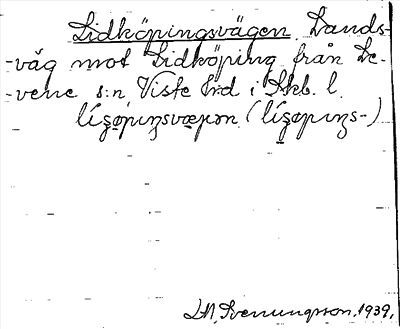 Lidköpingsvägen Lands-
-väg mot Lidköping från Le-
-vene s:n Viste hd i Skb. l.
líʒøpıŋsvægən (líʒøpıŋs-)
Svenungsson, 1939,